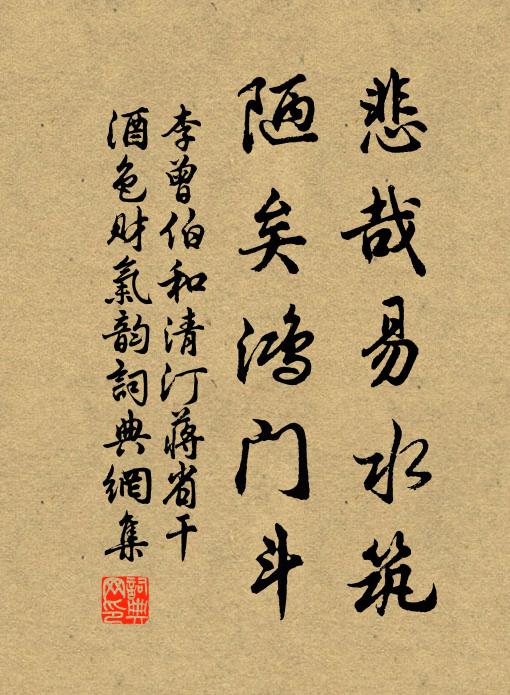 悲哉易水筑
陋矣鸿门斗
李曾伯和清汀蒋省干
酒色财氣韵詞典網集
詞典网印